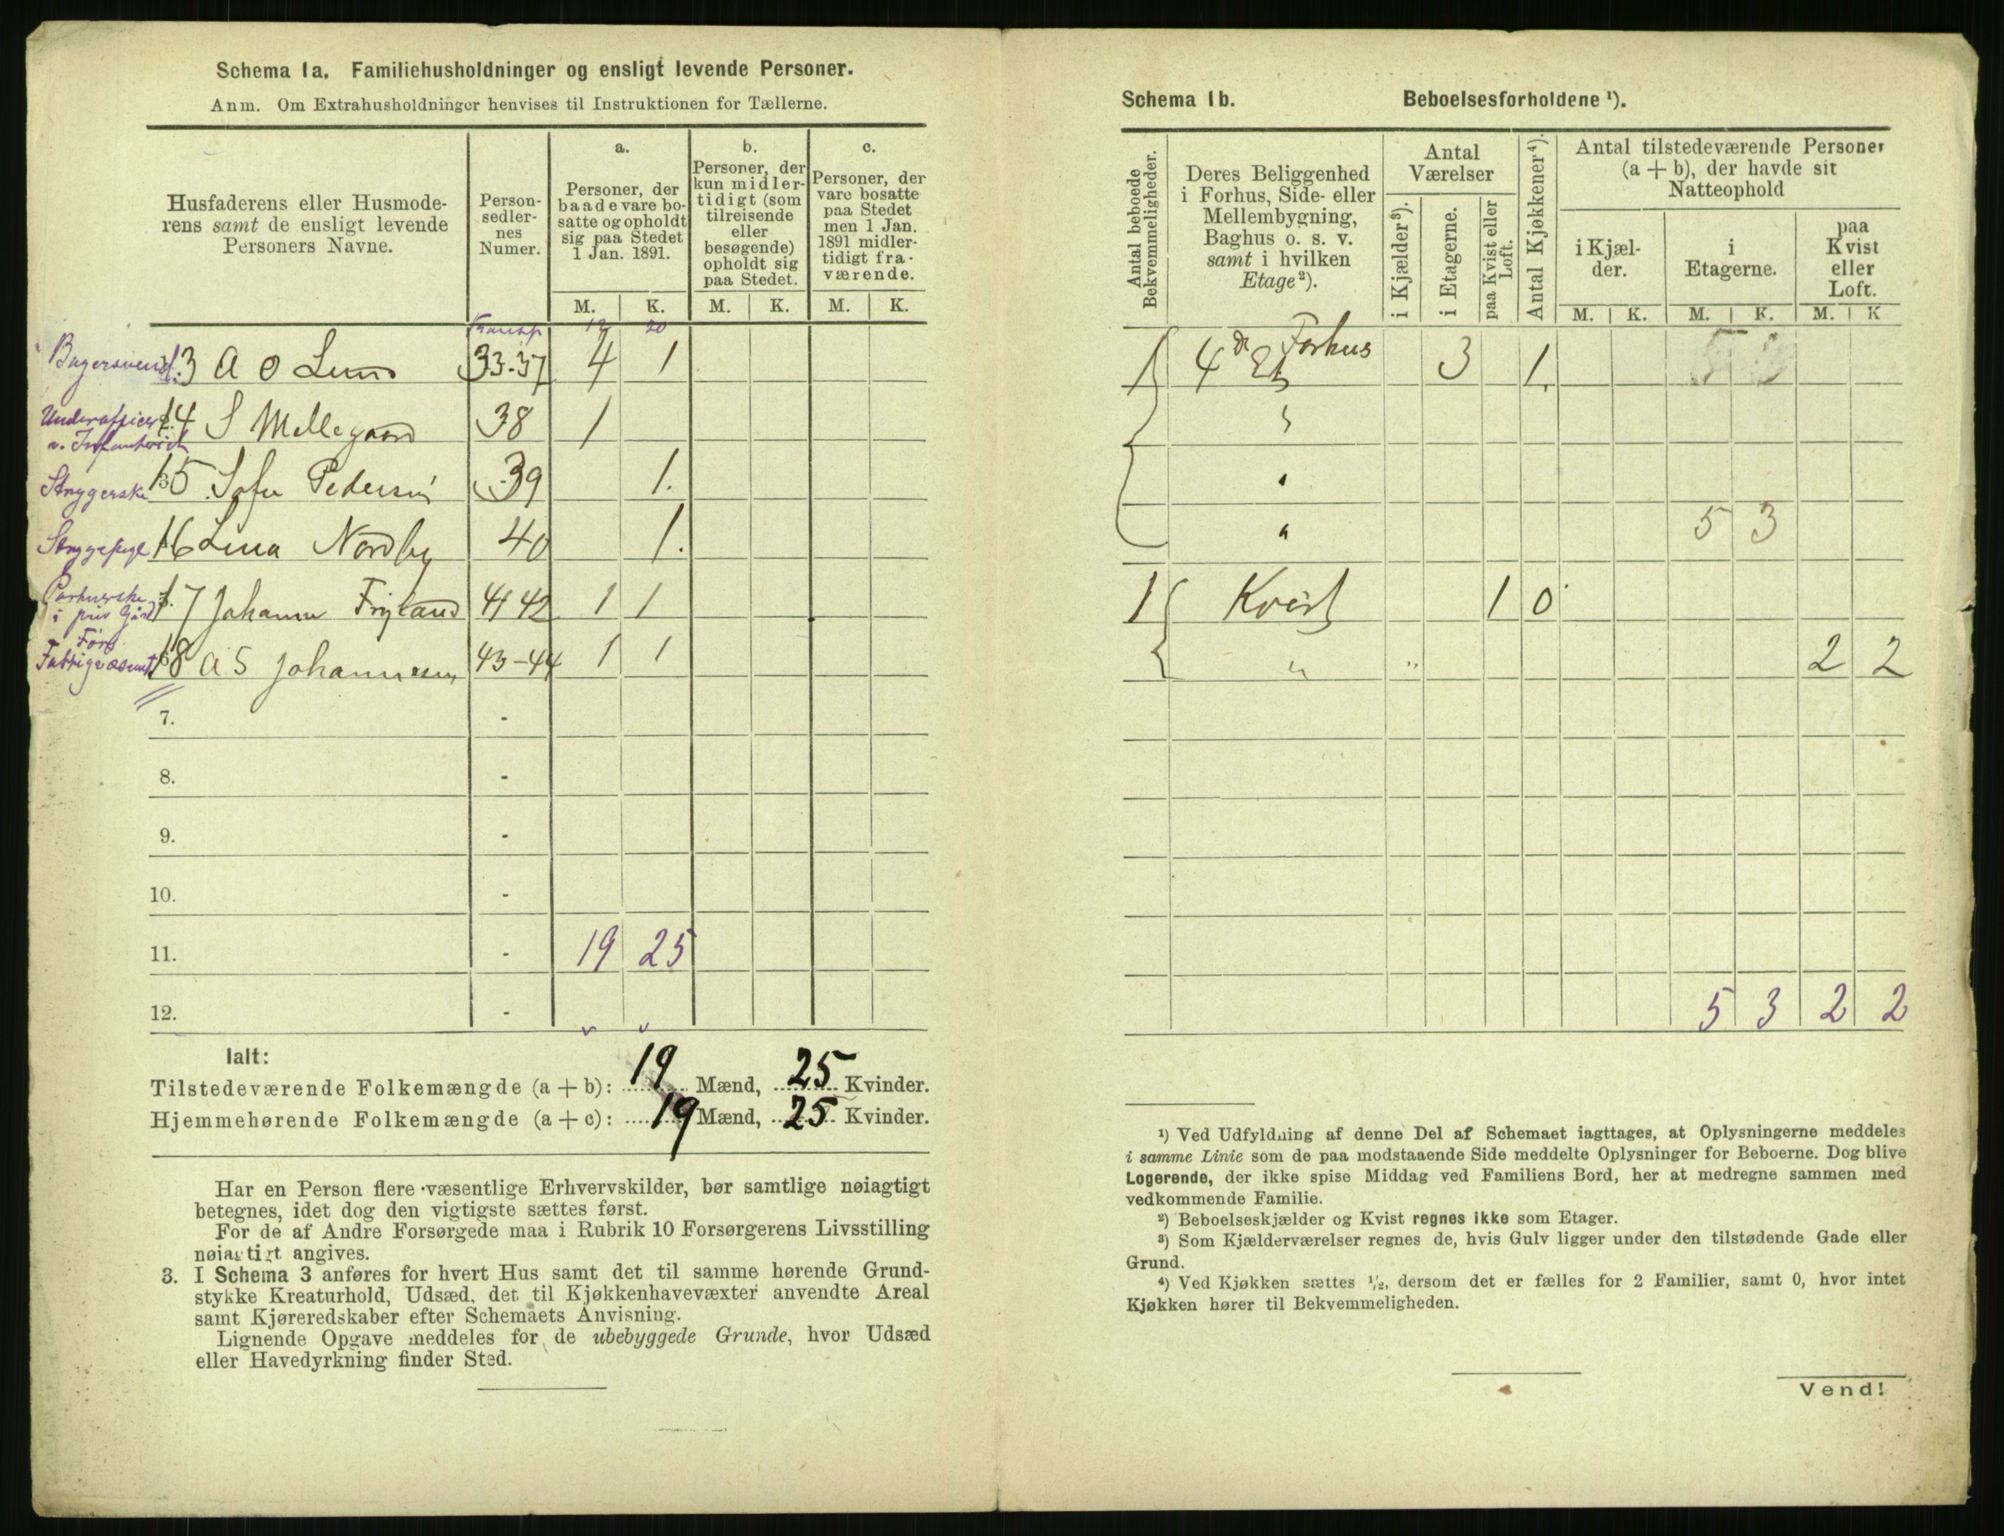 Schema 1a. Familiehusholdninger og ensligt levende Personer.
Anm. Om Extrahusholdninger henvises til Instruktionen for Tællerne.
Husfaderens eller Husmode-
rens samt de ensligt levende
Personers Navne.
Person-
sedler-
nes
Numer.
a.
Personer, der
baade vare bo-
satte og opholdt
sig paa Stedet
1 Jan. 1891.
b.
Personer, der
kun midler-
tidigt (som
tilreisende
eller
besøgende)
opholdt sig
paa Stedet.
c.
Personer, der
vare bosatte
paa Stedet
men 1 Jan.
1891 midler-
tidigt fra-
værende.
M. K. M. K. M. K.
Transp 12 20
Bagersvend 13 A O Lund 33-37 4 1
Underofficer v. Infanteriet 14 S Mellegaard 38 1
Strygerske 15 Sofie Pedersen 39 1.
Strygepige 16 Lina Nordby 40 1.
i priv Gård 17 Johanne Frysland 41 42 1 1
Førs. Fattigvæsenet 18 A S Johannesen 43-44 1 1
7. -
8. -
9. -
10. -
11. - 19 25
12. -
Ialt:
Tilstedeværende Folkemængde (a + b): 19 Mænd, 25 Kvinder.
Hjemmehørende Folkemængde (a + c): 19 Mænd, 25 Kvinder.
Har en Person flere væsentlige Erhvervskilder, bør samtlige nøiagtigt
betegnes, idet dog den vigtigste sættes først.
For de af Andre Forsørgede maa i Rubrik 10 Forsørgerens Livsstilling
nøiagtigt angives.
3. I Schema 3 anføres for hvert Hus samt det til samme hørende Grund-
stykke Kreaturhold, Udsæd, det til Kjøkkenhavevæxter anvendte Areal
samt Kjøreredskaber efter Schemaets Anvisning.
Lignende Opgave meddeles for de ubebyggede Grunde, hvor Udsæd
eller Havedyrkning finder Sted.
Schema 1b. Beboelsesforholdene ¹).
Antal beboede
Bekvemmeligheder.
Deres Beliggenhed
i Forhus, Side- eller
Mellembygning,
Baghus o. s. v.
samt i hvilken
Etage²).
Antal
Værelser
i Kjælder³).
i Etagerne.
paa Kvist eller
Loft.
Antal Kjøkkener⁴).
Antal tilstedeværende Personer
(a + b), der havde sit
Natteophold
i Kjæl-
der.
i
Etagerne.
paa
Kvist
eller
Loft.
M. K. M. K. M. K
1 4 de Et Forhus 3 1.
"
"
" 5 3
1 Kvist 1 0
" " 2 2
5 3 2 2
¹) Ved Udfyldning af denne Del af Schemaet iagttages, at Oplysningerne meddeles
i samme Linie som de paa modstaaende Side meddelte Oplysninger for Beboerne. Dog blive
Logerende, der ikke spise Middag ved Familiens Bord, her at medregne sammen med
vedkommende Familie.
²) Beboelseskjælder og Kvist regnes ikke som Etager.
³) Som Kjælderværelser regnes de, hvis Gulv ligger under den tilstødende Gade eller
Grund.
⁴) Ved Kjøkken sættes ¹/₂, dersom det er fælles for 2 Familier, samt 0, hvor intet
Kjøkken hører til Bekvemmeligheden.
Vend!